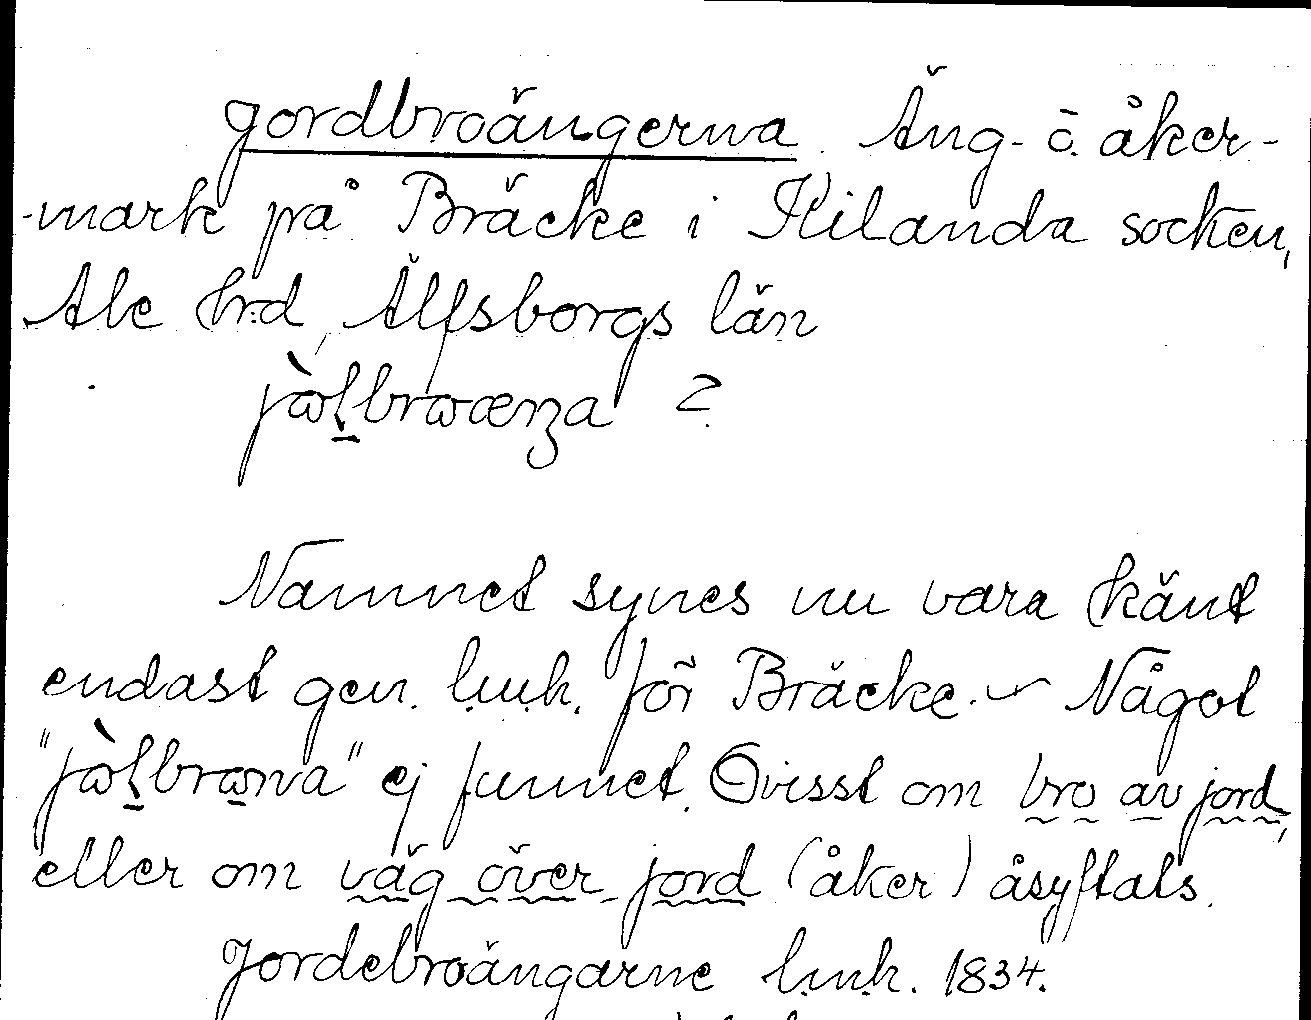 Jordbroängerna. Äng- o. åker-
-mark på Bräcke i Kilanda socken,
Ale hrd, Älfsborgs län
?
Namnet synes nu vara känt
endast gen. l.m.k. för Bräcke. Något
ej funnet. Ovisst om bro av jord,
eller om väg över jord (åker) åsyftats.
Jordebroängarne l.m.k. 1834.